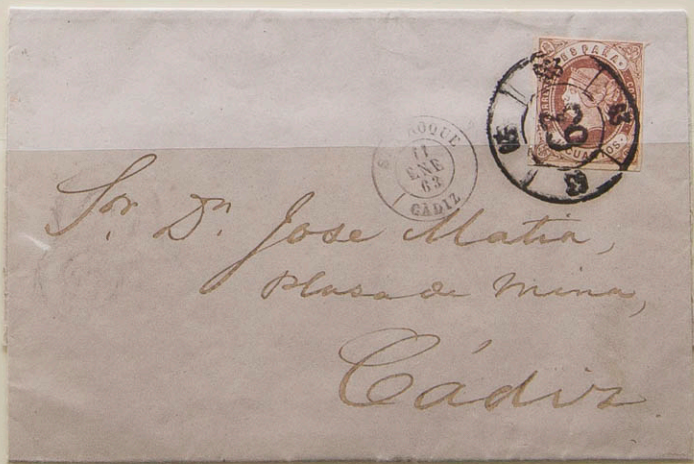 ESPAÑA
CUARTOS
63 63 63 63
63
ROQUE
11
ENE
63
CADIZ
Sor. Dn. Jose Matia,
Plasa de Mina,
Cádiz